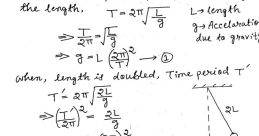 the length, T = 2π √(L/g) L → length
⇒ T/2π = √(L/g) g → Accelaratio
due to gravit
⇒ g = L (2π/T)² → ①
when, length is doubled, Time period T'
T' = 2π √(2L/g)
⇒ (T'/2π)² = 2L/g
2L